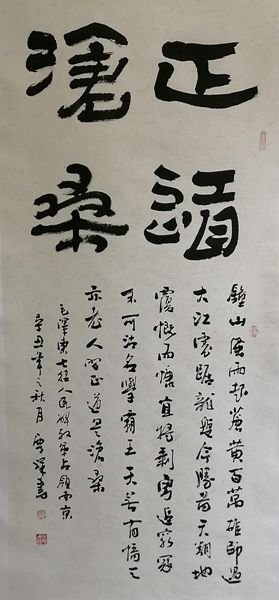 正道
滄桑
鐘山風雨起蒼黃百萬雄師過
大江虎踞龍盤今勝昔天翻地
覆慨而慷宜將剩勇追窮寇
不可沽名學霸王天若有情天
亦老人間正道是滄桑
毛澤東七律人民解放軍占領南京
辛丑年之秋月書